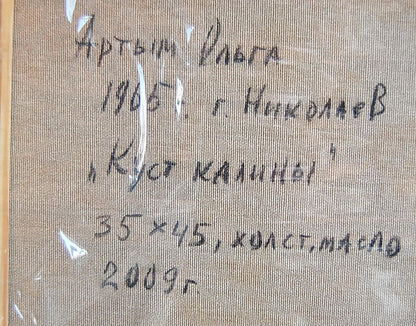 Артым Ольга
1965г. г. Николаев
„Куст калины"
35×45, холст, масло
2009г